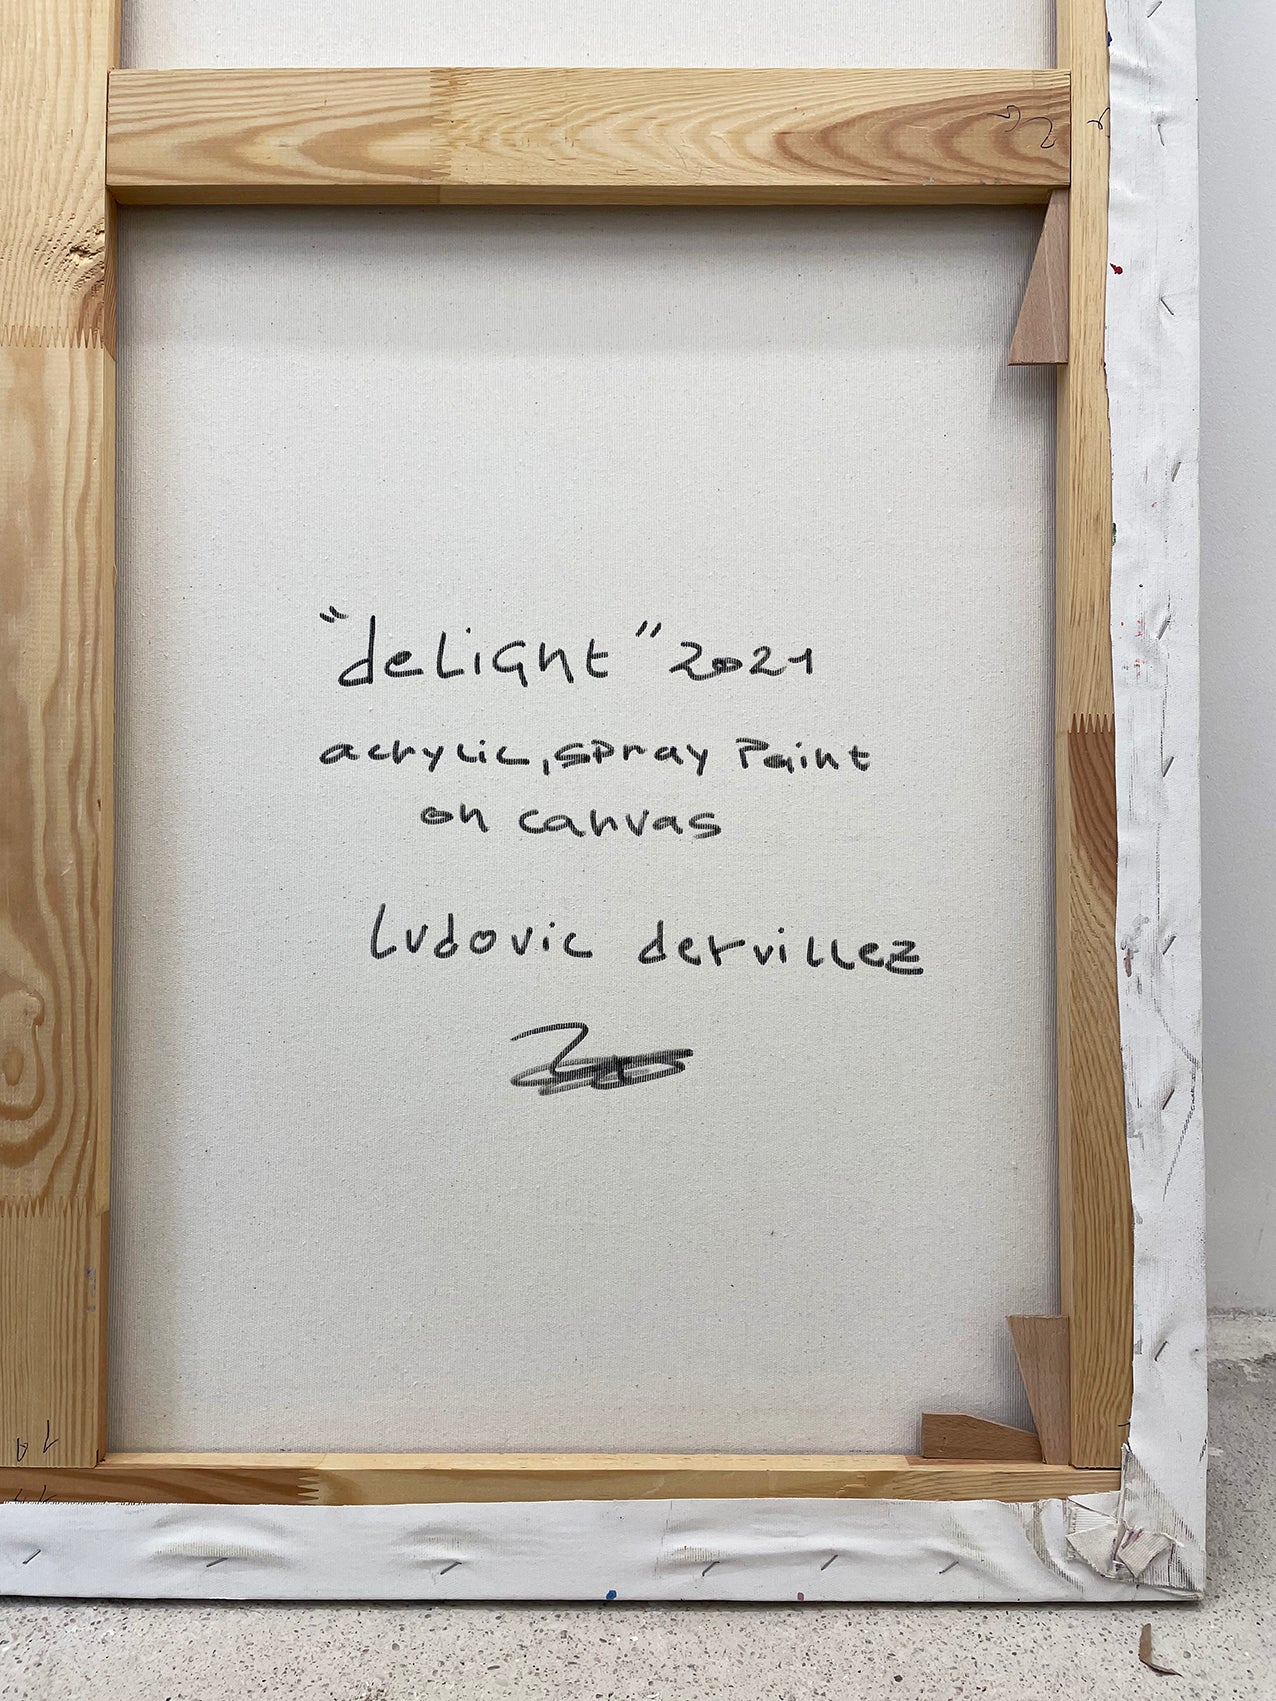 "delight" 2021
acrylic, spray paint
on canvas
ludovic dervillez